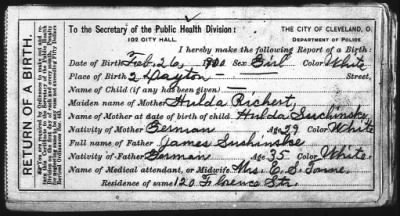 RETURN OF A BIRTH.
To the Secretary of the Public Health Division:
102 CITY HALL.
THE CITY OF CLEVELAND, O.
DEPARTMENT OF POLICE
I hereby make the following Report of a Birth:
Date of Birth Feb. 26 Sex Girl Color White
Place of Birth 2 Dayton Street,
Name of Child (if any has been given)
Maiden name of Mother Hulda Richert,
Name of Mother at date of birth of child Hulda Suchinske
Nativity of Mother German Age 29 Color White
Full name of Father James Suchinske
Nativity of Father German Age 35 Color White
Name of Medical attendant, or Midwife Mrs. E. S.
Residence of same 120 Florence Str.